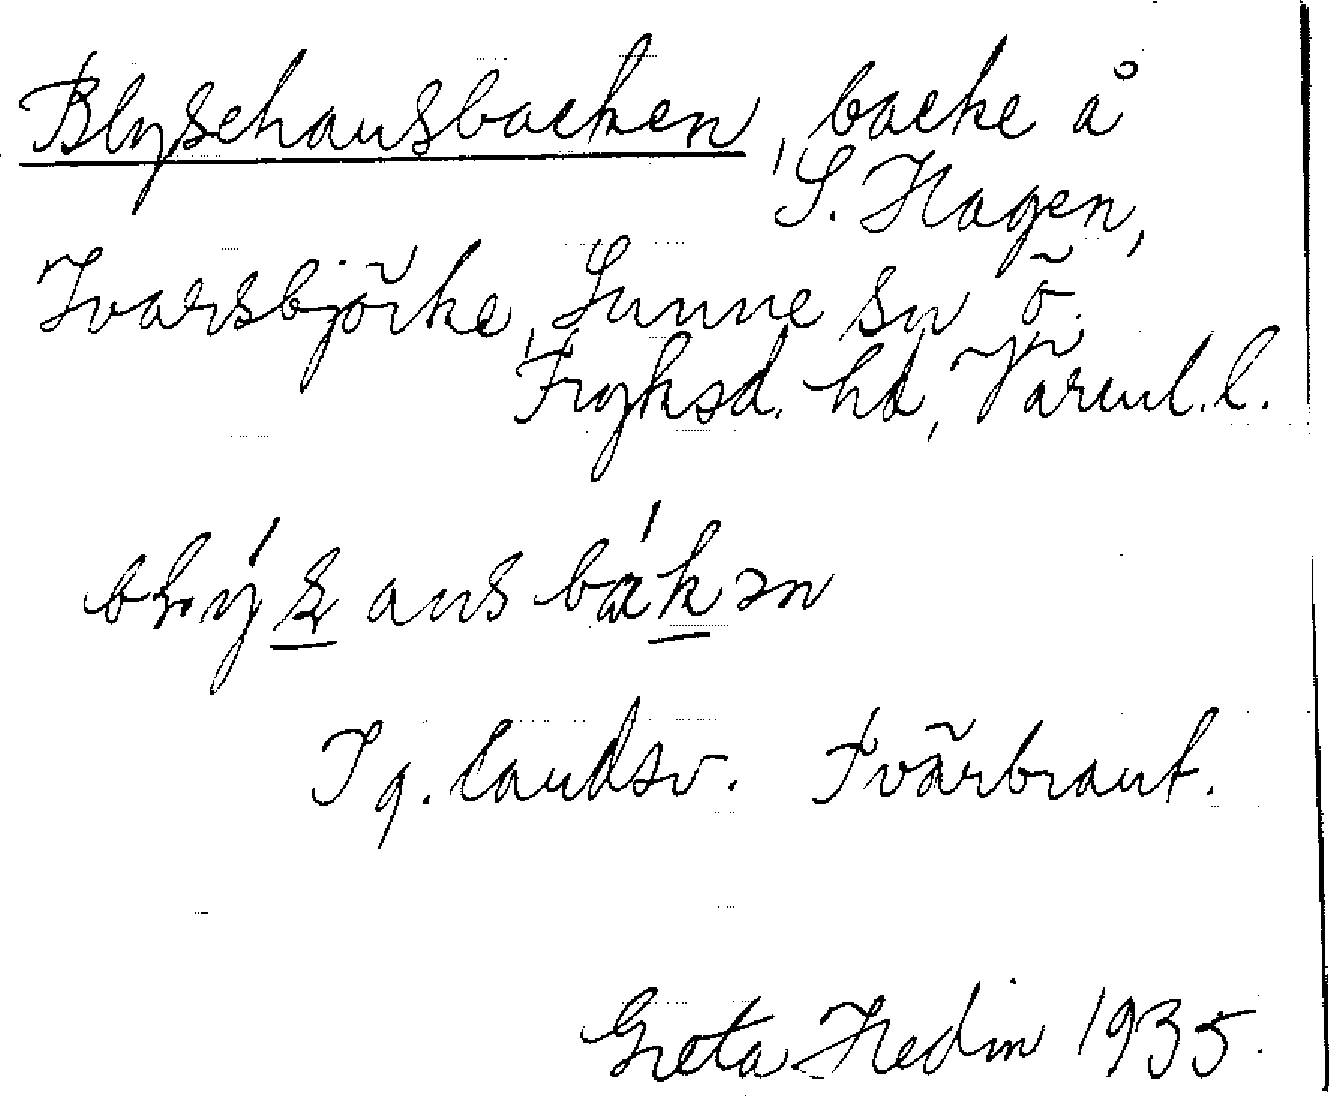 Blyschansbacken, backe å
S. Hagen,
Ivarsbjörke, Sunne sn ö.
Fryksd. hd, Värml. l.
Ig. landsv. Tvärbrant.
Greta Hedin 1935.